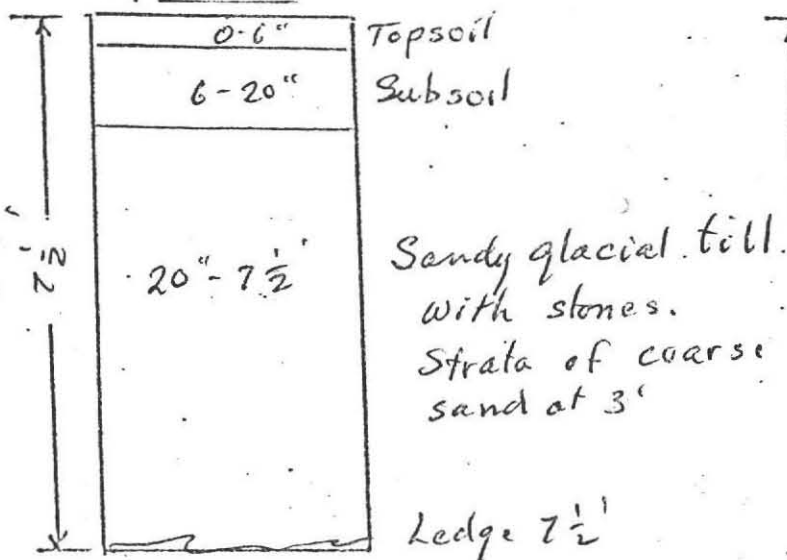 0-6" Topsoil
6-20" Subsoil
7 1/2'
20"-7 1/2' Sandy glacial till.
with stones.
Strata of coarse
sand at 3'
Ledge 7 1/2'